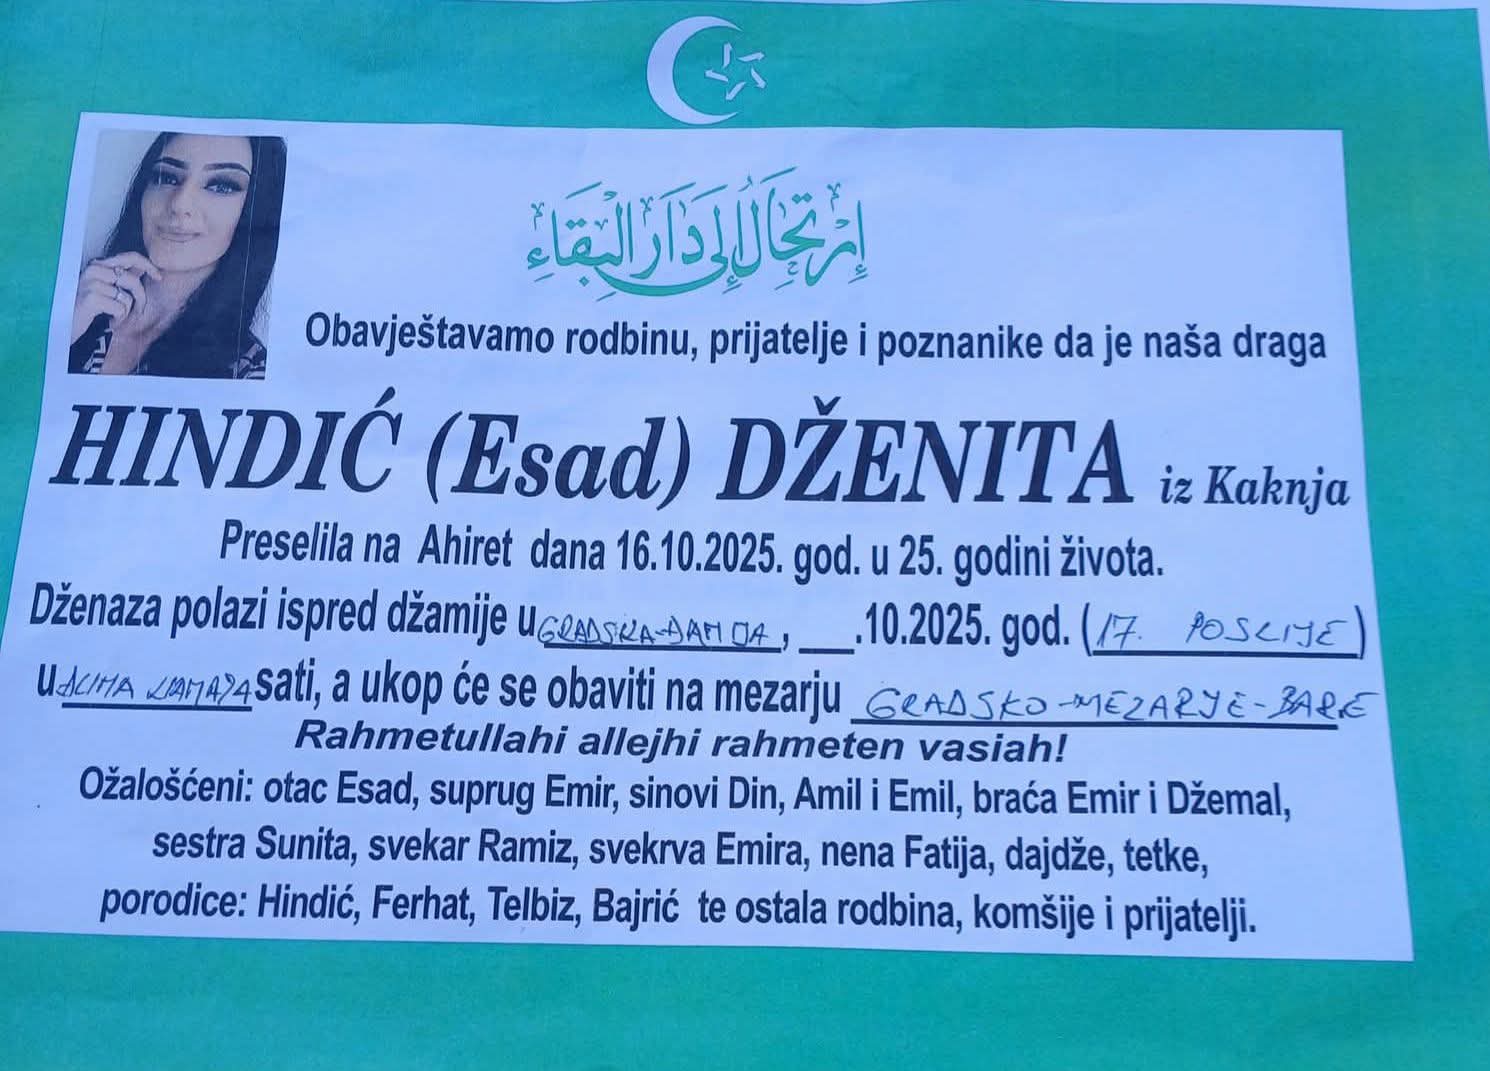 إِرْتِحَالٌ إِلَى دَارِ الْبَقَاءِ
Obavještavamo rodbinu, prijatelje i poznanike da je naša draga
HINDIĆ (Esad) DŽENITA iz Kaknja
Preselila na Ahiret dana 16.10.2025. god. u 25. godini života.
Dženaza polazi ispred džamije u GRADSKA-, __.10.2025. god. (17. POSLIJE)
u sati, a ukop će se obaviti na mezarju GRADSKO-MEZARJE-BARE
Rahmetullahi allejhi rahmeten vasiah!
Ožalošćeni: otac Esad, suprug Emir, sinovi Din, Amil i Emil, braća Emir i Džemal,
sestra Sunita, svekar Ramiz, svekrva Emira, nena Fatija, dajdže, tetke,
porodice: Hindić, Ferhat, Telbiz, Bajrić te ostala rodbina, komšije i prijatelji.